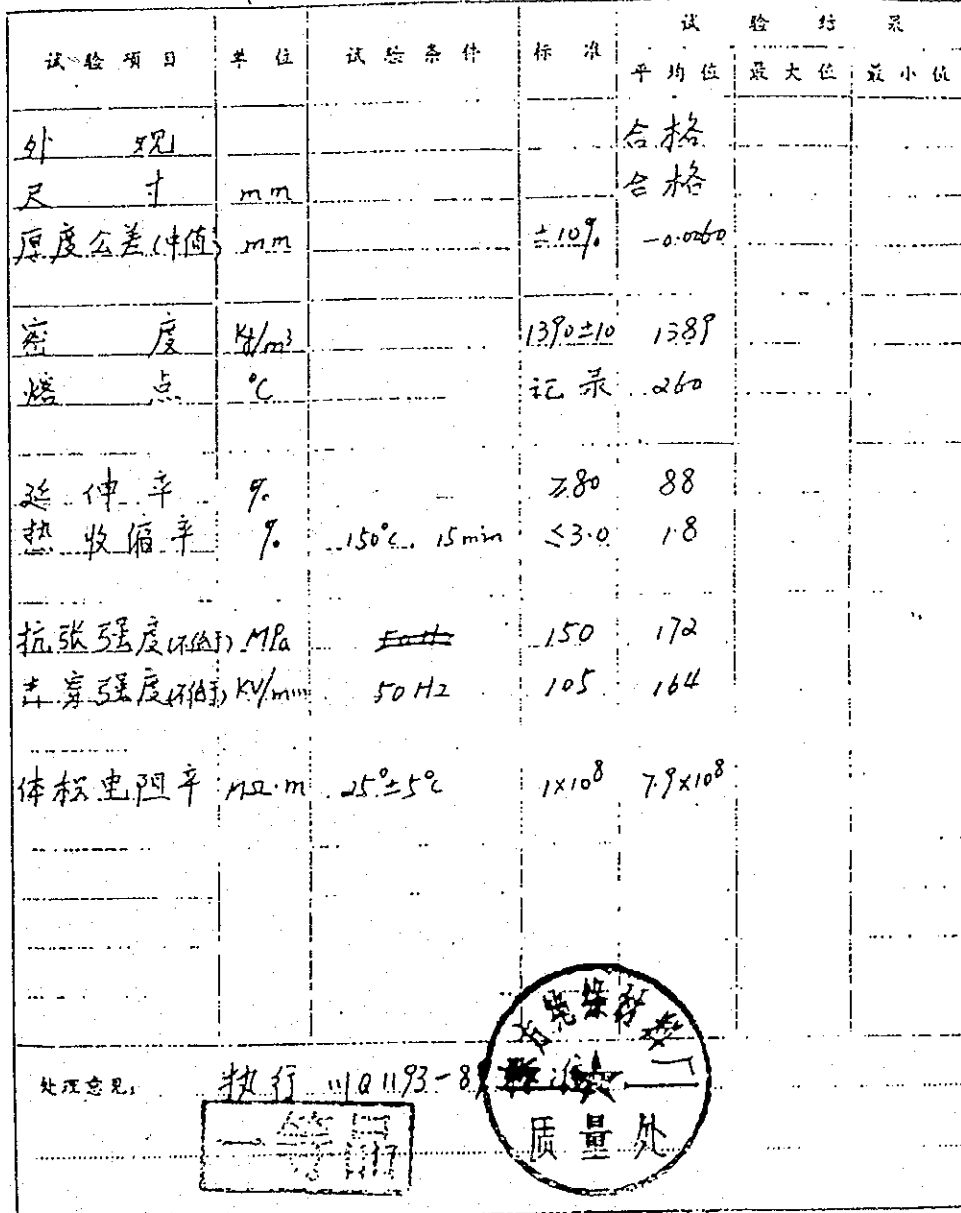 试验结果
试验项目 单位 试验条件 标准 平均值 最大值 最小值
外观 合格
尺寸 mm 合格
厚度公差(中值) mm ±10% -0.0060
密度 Kg/m³ 1390±10 1389
熔点 °C 记录 260
延伸率 % ≥80 88
热收缩率 % 150°C. 15min ≤3.0 1.8
抗张强度(不低于) MPa 150 172
击穿强度(不低于) KV/mm 50HZ 105 164
体积电阻率 MΩ·m 25°±5°C 1×10⁸ 7.9×10⁸
绝缘材料厂
处理意见: 执行
质量处
一等品